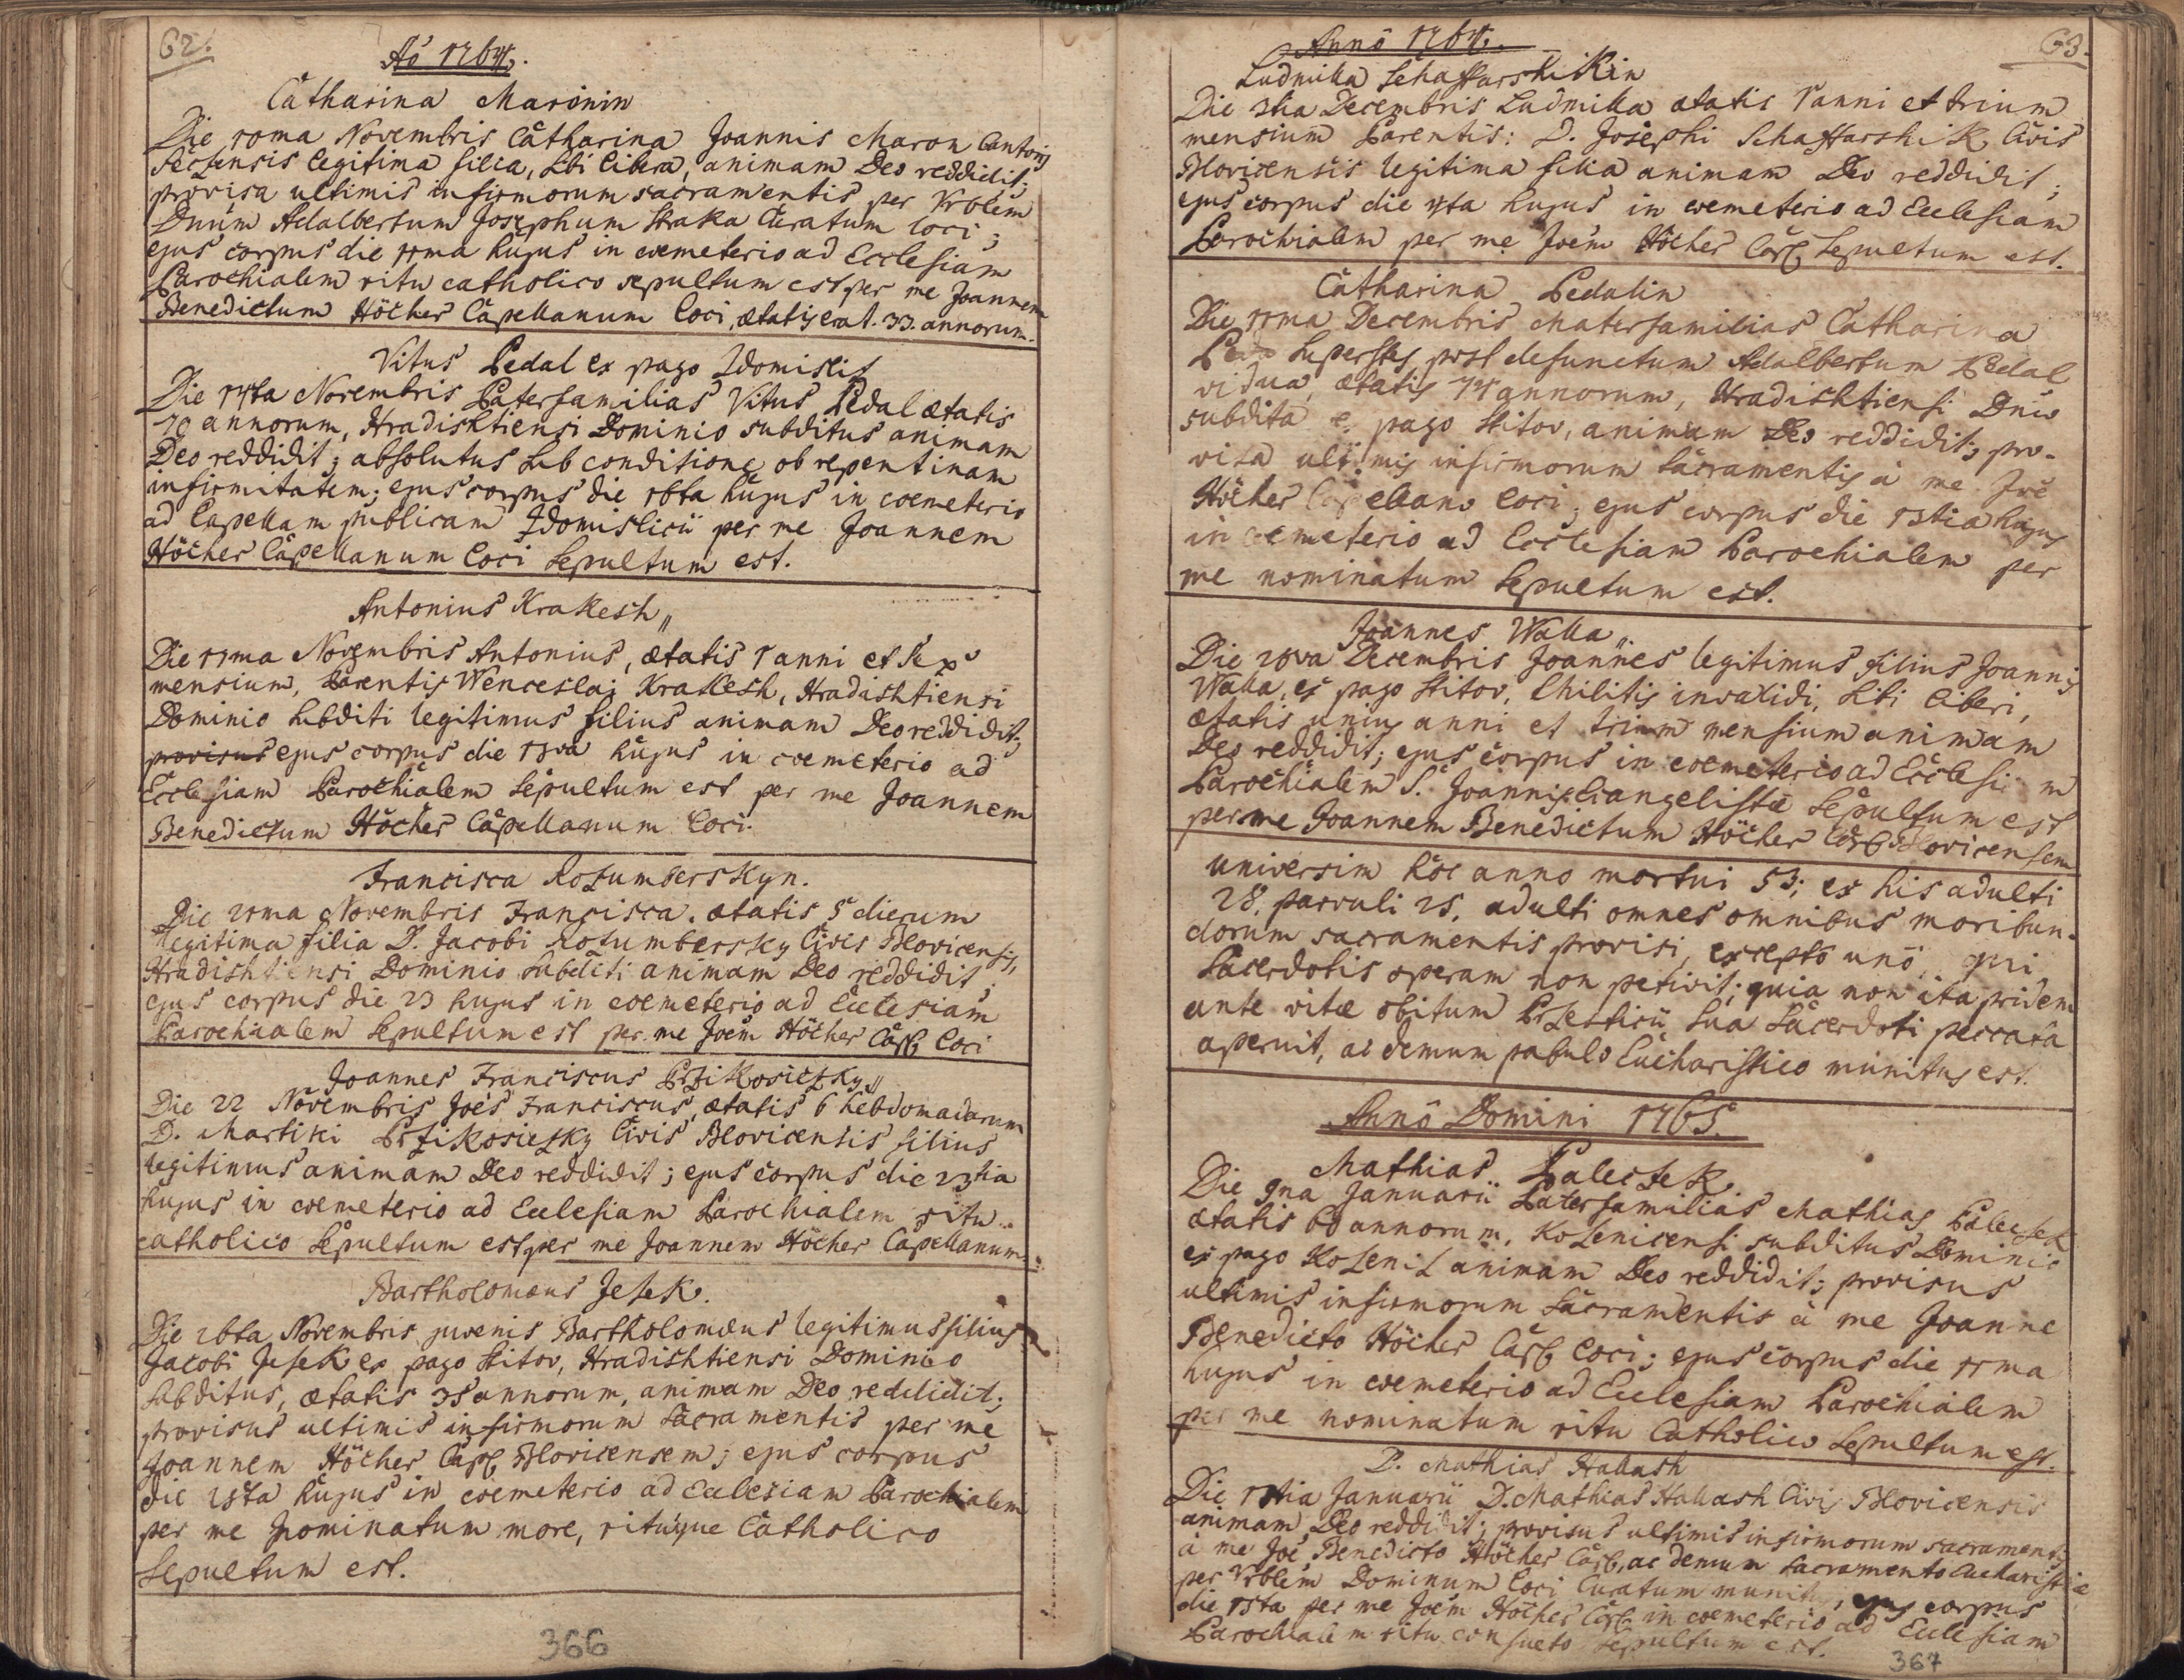 62.
Aõ 1764.
Catharina Maronin
Die 10ma Novembris Catharina Joannis Maron Cantoris
legitima filia, sibi libera, animam Deo reddidit;
provisa ultimis infirmorum sacramentis per Vrblem
Dnum Adalbertum Josephum Straka Curatum loci;
ejus corpus die 11ma hujus in coemeterio ad Ecclesiam
Parochialem ritu catholico sepultum est per me Joannem
Benedictum Höcher Capellanum loci, ætatis erat 33. annorum.
Vitus Pedal ex pago Zdomislit
Die 14ta Novembris Paterfamilias Vitus Pedal ætatis
70 annorum, Hradishtiensi Dominio subditus animam
Deo reddidit; absolutus sub conditione ob repentinam
infirmitatem; ejus corpus die 16ta hujus in coemeterio
ad Capellam publicam Zdomislicii per me Joannem
Höcher Capellanum loci sepultum est.
Antonius Krakesh„
Die 17ma Novembris Antonius, ætatis 1 anni et sex
mensium, Parentis Wenceslai Krakesh, Hradishtiensi
Dominio subditi legitimus filius animam Deo reddidit;
provisus ejus corpus die 18va hujus in coemeterio ad
Ecclesiam Parochialem sepultum est per me Joannem
Benedictum Höcher Capellanum loci.
Francisca Rozumberskyn.
Die 21ma Novembris Francisca. ætatis 5 dierum
legitima filia D. Jacobi Rozumbersky Civis Blovicensis,
Hradishtiensi Dominio subditi animam Deo reddidit;
ejus corpus die 23 hujus in coemeterio ad Ecclesiam
Parochialem sepultum est per me Joem Höcher Cap. loci
Joannes Franciscus Przikosiczky„
Die 22 Novembris Joes Franciscus, ætatis 6 hebdomadarum
D. Martini Przikosiczky Civis Blovicensis filius
legitimus animam Deo reddidit; ejus corpus die 23tia
hujus in coemeterio ad Ecclesiam Parochialem ritu
catholico sepultum est per me Joannem Höcher Capellanum.
Bartholomæus Jesek.
Die 26ta Novembris juvenis Bartholomæus legitimus filius
Jacobi Jesek ex pago Stitov, Hradishtiensi Dominio
subditus, ætatis 35 annorum, animam Deo reddidit;
provisus ultimis infirmorum sacramentis per me
Joannem Höcher Cap. Blovicensem; ejus corpus
die 28ta hujus in coemeterio ad Ecclesiam Parochialem
per me nominatum more, rituque Catholico
sepultum est.
366
63.
Annô 1764.
Ludmilla Schaffarshikin
Die 3tia Decembris Ludmilla ætatis 1 anni et trium
mensium Parentis: D. Josephi Schaffarshik Civis
Blovicensis legitima filia animam Deo reddidit;
ejus corpus die 4ta hujus in coemeterio ad Ecclesiam
Parochialem per me Joem Höcher Cap. sepultum est.
Catharina Pedalin
Die 11ma Decembris Materfamilias Catharina
superstes post defunctum Adalbertum Pedal
vidua, ætatis 74 annorum, Hradishtiensi Dnio
subdita e pago Stitov, animam Deo reddidit; pro-
visa ultimis infirmorum Sacramentis à me Joe
Höcher Capellano loci; ejus corpus die 13tia hujus
in coemeterio ad Ecclesiam Parochialem per
me nominatum sepultum est.
Joannes Walla„
Die 28va Decembris Joannes legitimus filius Joannis
Walla, ex pago Stitov, Militis invalidi, sibi liberi,
ætatis unius anni et trium mensium animam
Deo reddidit; ejus corpus in coemeterio ad Ecclesiam
Parochialem S. Joannis Evangelistæ sepultum est
per me Joannem Benedictum Höcher Cap. Blovicensem
universim hoc anno mortui 53; ex his adulti
28, parvuli 25. adulti omnes omnibus moribun-
dorum sacramentis provisi, excepto unô, qui
Sacerdotis operam non petivit; quia non ita pridem
ante vitæ obitum sua Sacerdoti peccata
aperuit, ac demum pabulo Eucharistico munitus est.
Annô Domini 1765.
Mathias Palecsek
Die 9na Januarii Paterfamilias Mathias Palecsek
ætatis 60 annorum, Kozenicensi subditus Dominio
ex pago Kozeniz animam Deo reddidit; provisus
ultimis infirmorum Sacramentis à me Joanne
Benedicto Höcher Cap. loci; ejus corpus die 11ma
hujus in coemeterio ad Ecclesiam Parochialem
per me nominatum ritu Catholico sepultum est.
D. Mathias Hallash
Die 13tia Januarii D. Mathias Hallash Civis Blovicensis
animam Deo reddidit; provisus ultimis infirmorum sacramentis
à me Joe Benedicto Höcher Cap, ac demum sacramento Eucharistiæ
per Vrblem Dominum loci Curatum munitus, ejus corpus
die 15ta per me Joem Höcher Cap. in coemeterio ad Ecclesiam
Parochialem ritu consueto sepultum est.
367